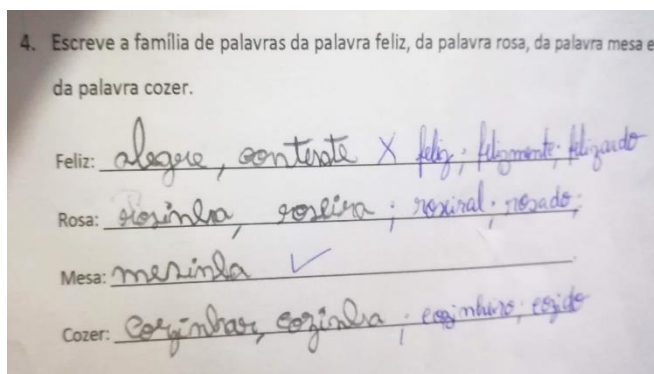 4. Escreve a família de palavras da palavra feliz, da palavra rosa, da palavra mesa e
da palavra cozer.
Feliz: alegre, contente X feliz; felizmente; felizardo
Rosa: rosinha, roseira; roseiral; rosado;
Mesa: mesinha ✓
Cozer: cozinhar, cozinha; cozinheiro; cozido